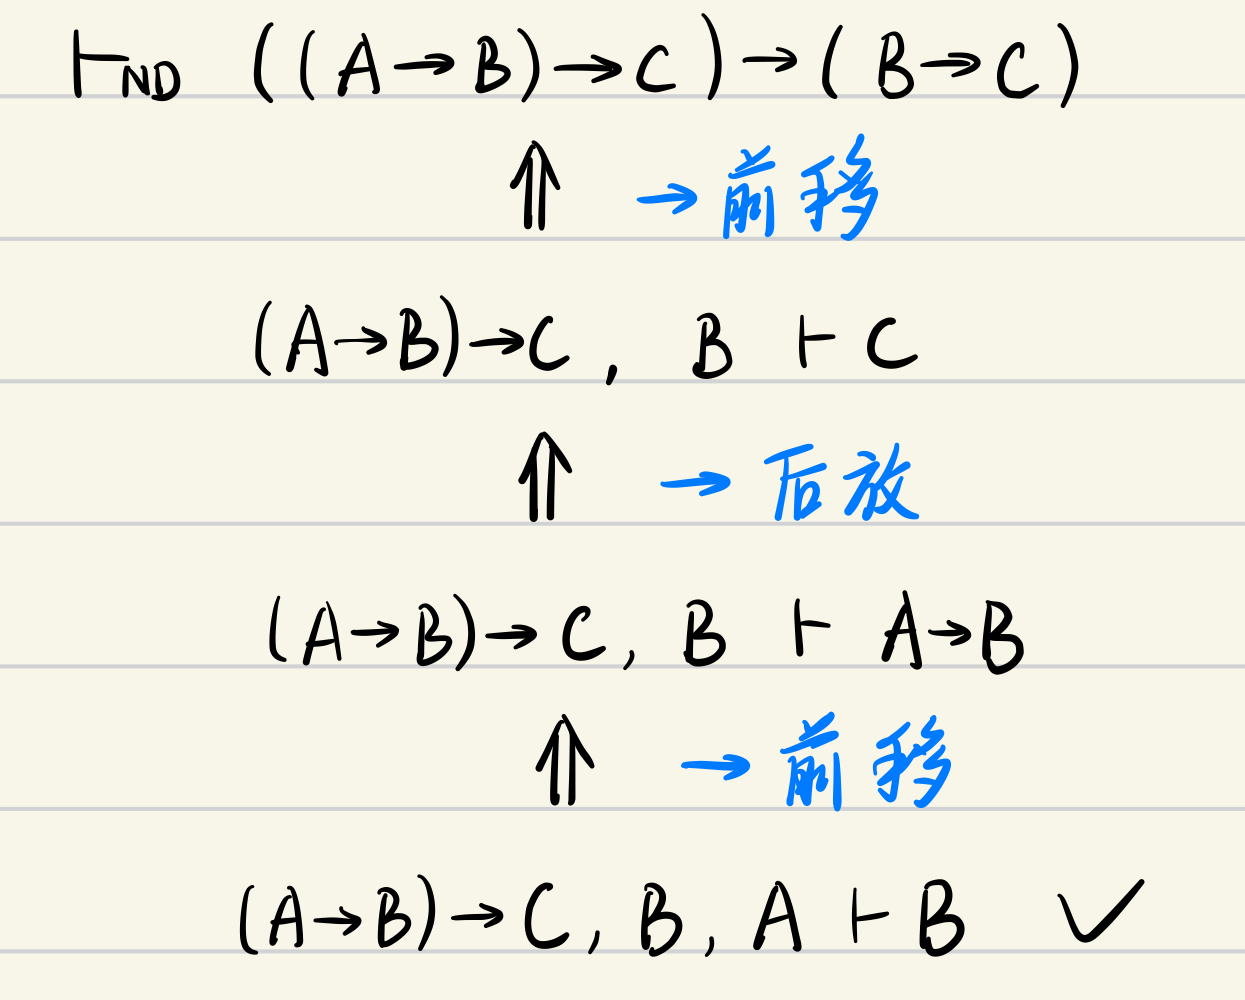 ⊢ND ((A→B)→C)→(B→C)
⇑ →前移
(A→B)→C, B ⊢ C
⇑ →后放
(A→B)→C, B ⊢ A→B
⇑ →前移
(A→B)→C, B, A ⊢ B ✓